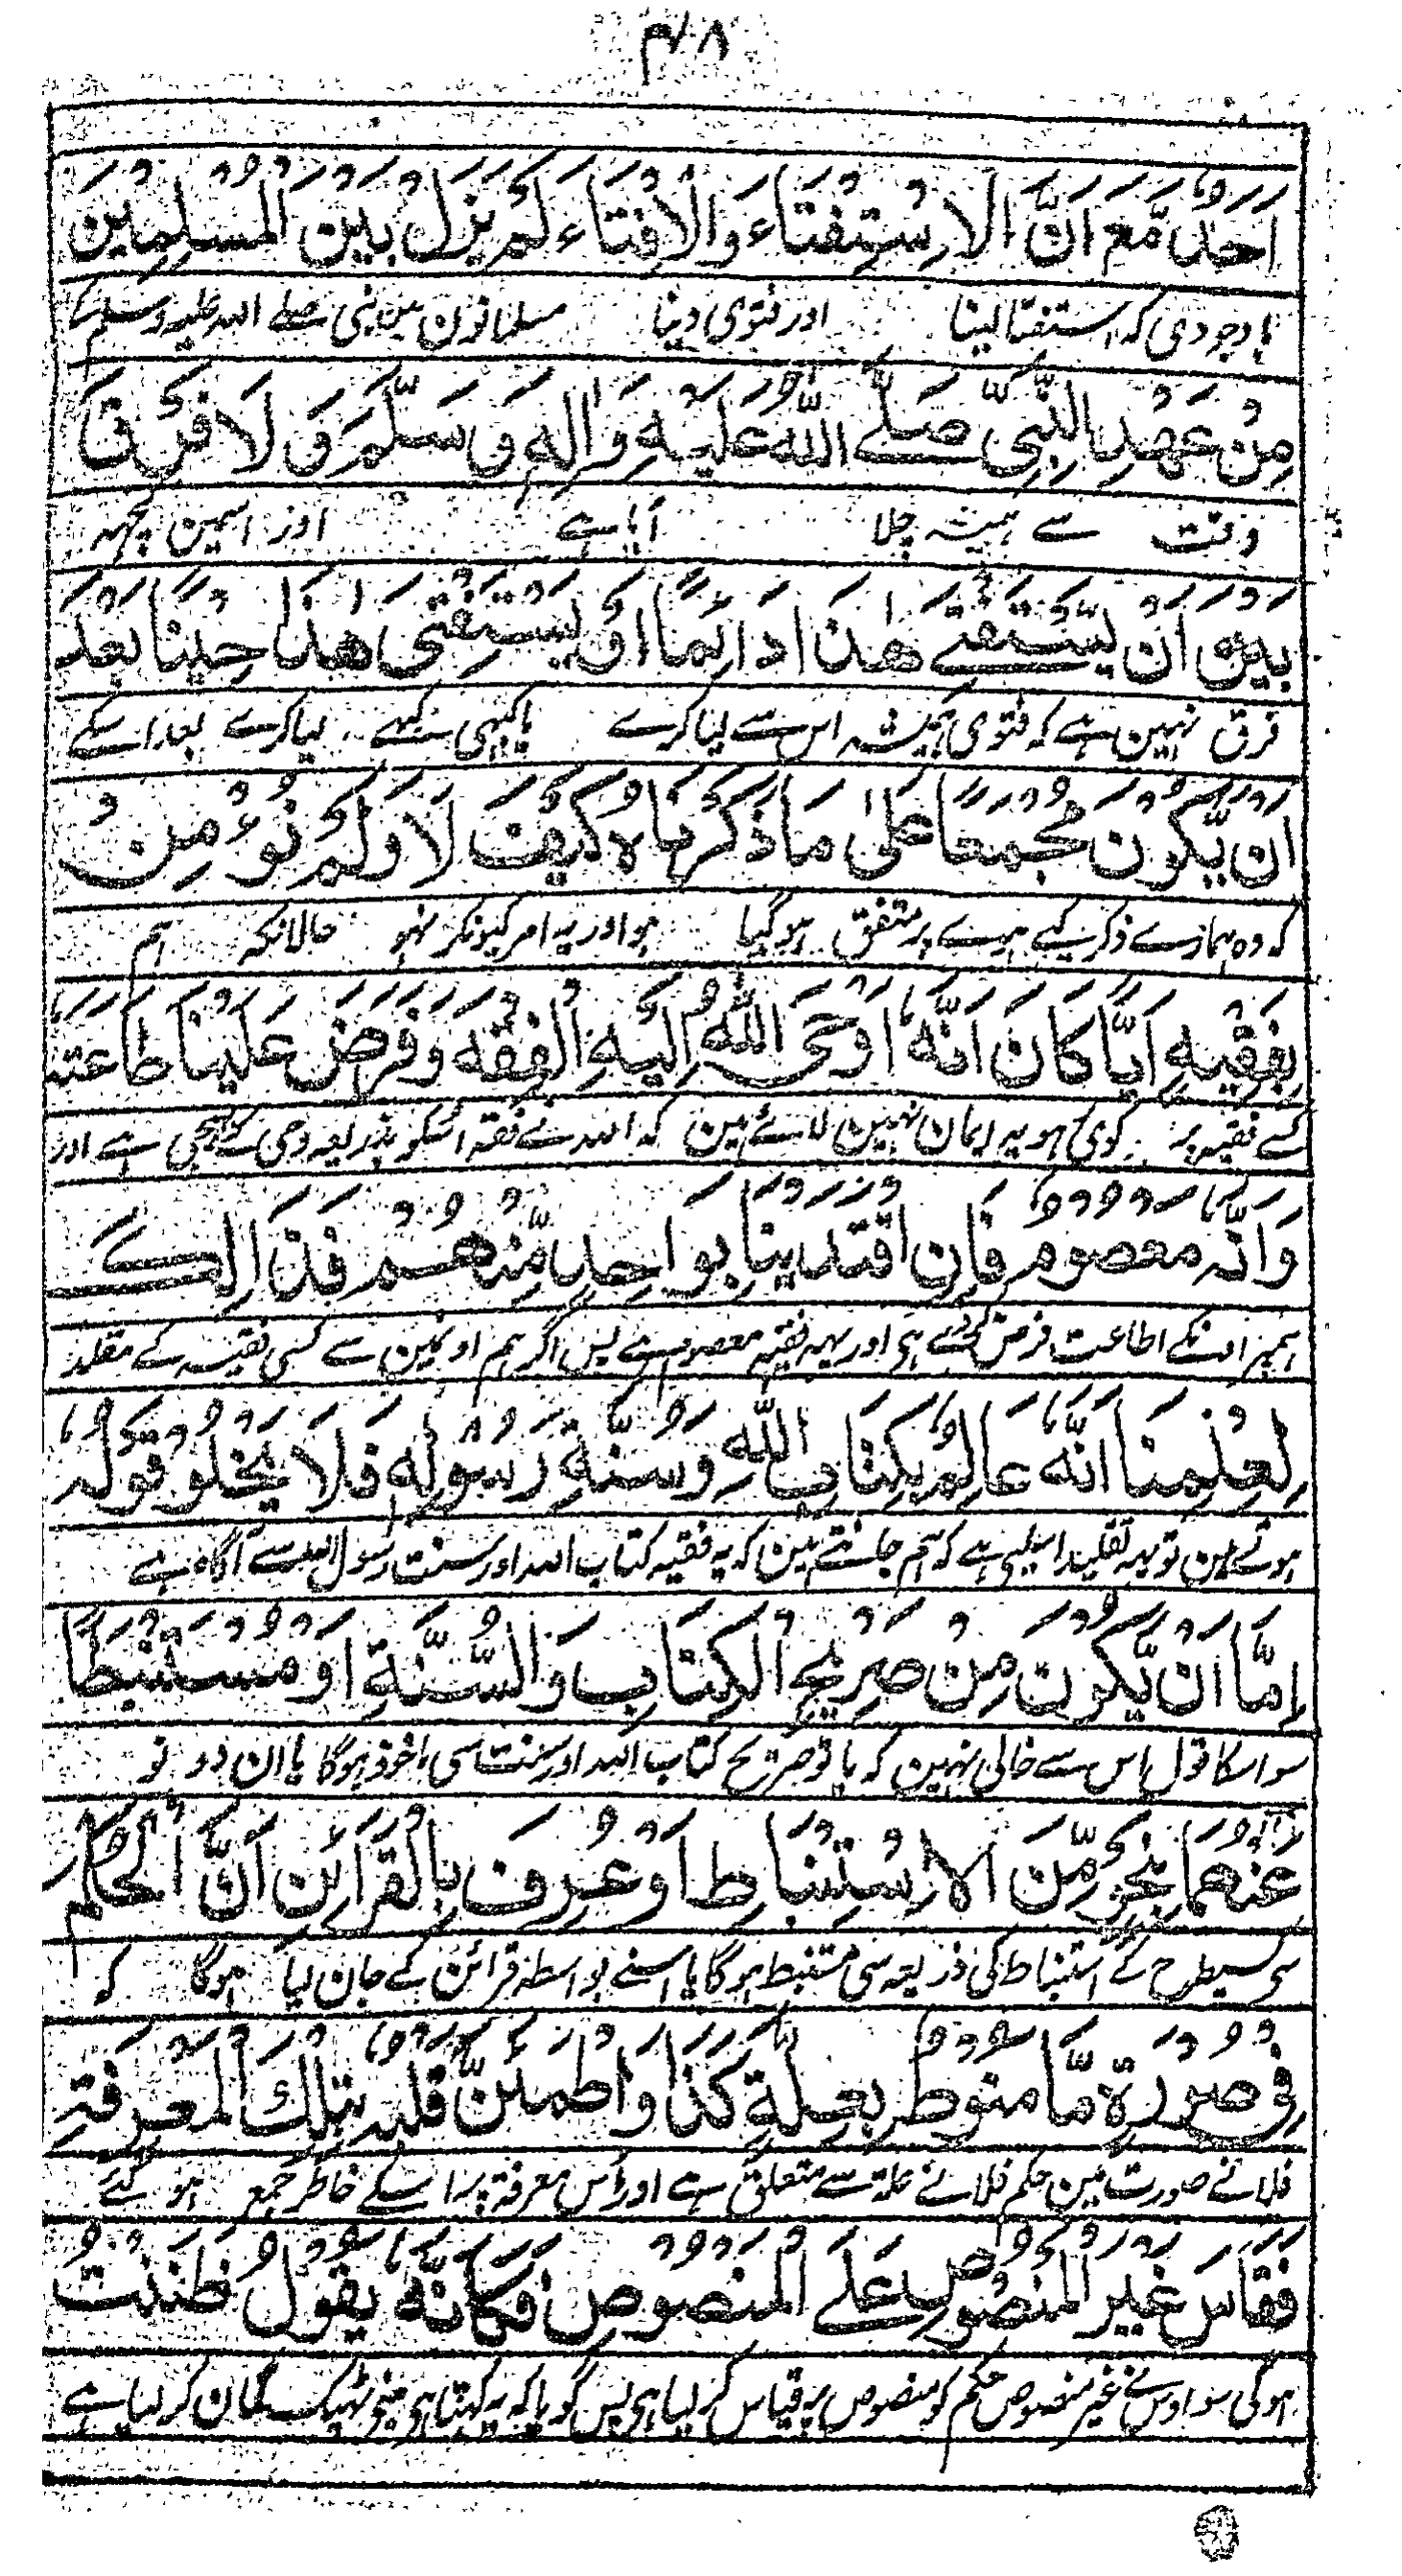 ۴۸
اَحَدٌ مَّعَ اَنَّ الْاِسْتِفْتَاءَ وَالْاِفْتَاءَ لَمْ يَزَلْ بَيْنَ الْمُسْلِمِيْنَ
باوجودی کہ استفتا لینا اور فتوی دینا مسلمانون مین نبی صلے اللہ علیہ وسلم کے
مِنْ عَهْدِ النَّبِيِّ صَلَّے اللّٰهُ عَلَيْهِ وَاٰلِهٖ وَسَلَّمَ وَلَا فَرْقَ
وقت سے ہمیشہ چلا آیا ہے اور اسمین کچھہ
بَيْنَ اَنْ يَّسْتَفْتِے هٰذَا دَائِمًا اَوْ يَسْتَفْتِىَ هٰذَا حِيْنًا بَعْدَ
فرق نہین ہے کہ فتوی ہمیشہ اس سے لیا کرے یا کبہی لیا کرے بعد اسکے
اَنْ يَّكُوْنَ مُجْمَعًا عَلٰى مَا ذَكَرْنَاهُ كَيْفَ لَا وَلَمْ نُؤْمِنْ
کہ وہ ہمارے ذکر کیے ہوے پر متفق ہوگیا ہو اور یہ امر کیونکر نہو حالانکہ ہم
بِفَقِيْهٍ اَيًّا كَانَ اَنَّهٗ اَوْحَى اللّٰهُ اِلَيْهِ الْفِقْهَ وَفَرَضَ عَلَيْنَا طَاعَتَهٗ
کے فقیہ پر کوی ہو یہ ایمان نہین لائے ہین کہ اللہ نے فقہ اسکو بذریعہ وحی کے بھیجی ہے اور
وَاَنَّهٗ مَعْصُوْمٌ فَاِنِ اقْتَدَيْنَا بِوَاحِدٍ مِّنْهُمْ فَذَالِكَ
ہمپر اسکے اطاعت فرض کردے ہی اور یہہ فقیہ معصوم ہے پس اگر ہم اونمین سے کسی فقیہ کے مقلد
لِعِلْمِنَا اَنَّهٗ عَالِمٌ بِكِتَابِ اللّٰهِ وَسُنَّةِ رَسُوْلِهٖ فَلَا يَخْلُوْ قَوْلُهٗ
ہوتے ہین تو یہہ تقلید اسلیے ہے کہ ہم جانتے ہین کہ یہ فقیہ کتاب اللہ اور سنت رسول اللہ سے آگاہ ہے
اِمَّا اَنْ يَّكُوْنَ مِنْ صَرِيْحِ الْكِتَابِ وَالسُّنَّةِ اَوْ مُسْتَنْبَطًا
سو اسکا قول اس سے خالی نہین کہ یا تو صریح کتاب اللہ اور سنت سی ماخوذ ہوگا یا ان دو نو
عَنْهُمَا بِنَحْوٍ مِّنَ الْاِسْتِنْبَاطِ اَوْ عُرِفَ بِالْقَرَائِنِ اَنَّ الْحُكْمَ
سی کسیطرح کے استنباط کی ذریعہ سی مستنبط ہوگا یا اسنے بواسطہ قرائن کے جان لیا ہوگا کہ
فِيْ صُوْرَةٍ مَّا مَنُوْطٌ بِعِلَّةٍ كَذَا وَاطْمَئَنَّ قَلْبُهٗ بِتِلْكَ الْمَعْرِفَةِ
فلانے صورت مین حکم فلانے علۃ سے متعلق ہے اور اس معرفۃ پر اسکے خاطر جمع ہو گئے
فَقَاسَ غَيْرَ الْمَنْصُوْصِ عَلَے الْمَنْصُوْصِ فَكَاَنَّهٗ يَقُوْلُ ظَنَنْتُ
ہو گی سو اوسنے غیر منصوص حکم کو منصوص پہ قیاس کر لیا ہی پس گویا کہ یہ کہتا ہی ٹھیک گمان کر لیا ہے